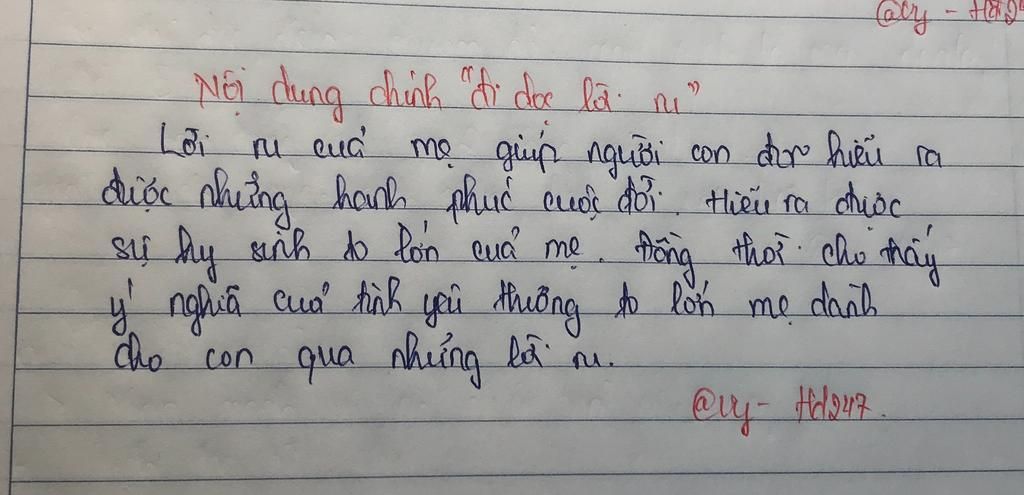 @vy - Hd24
Nội dung chính "đi dọc lời ru"
Lời ru của mẹ giúp người con đọc hiểu ra
được những hạnh phúc cuộc đời. Hiểu ra được
sự hy sinh to lớn của mẹ. Đồng thời cho thấy
ý nghĩa của tình yêu thương to lớn mẹ dành
cho con qua những lời ru.
@vy - Hd247.